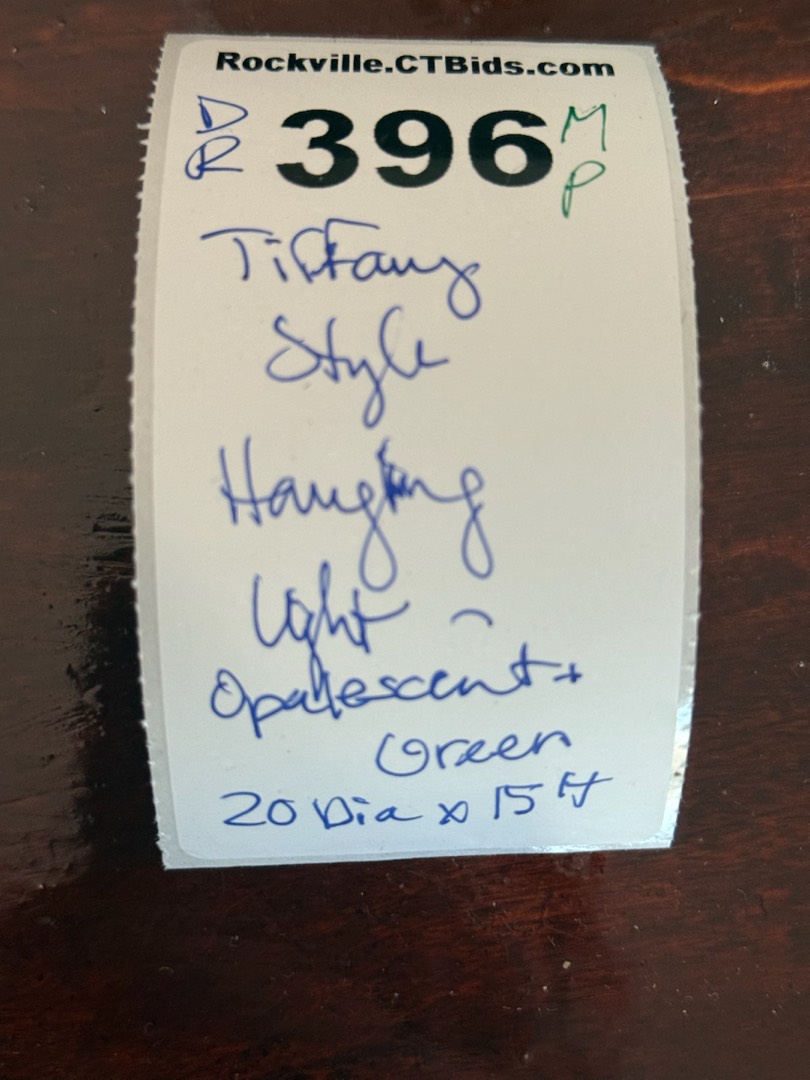 Rockville.CTBids.com
DR 396 MP
Tiffany
Style
Hanging
Light -
Opalescent +
Green
20 Dia x 15 H